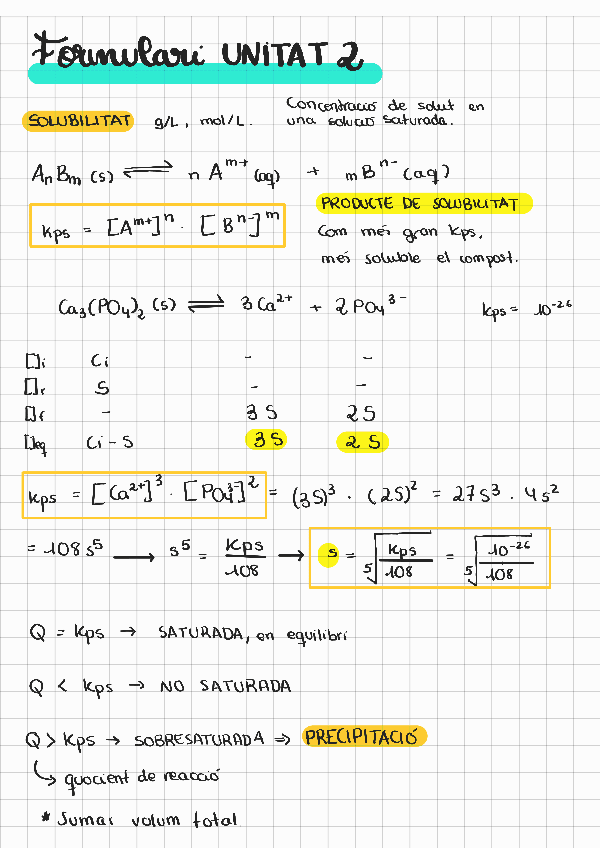 Formulari UNITAT 2
SOLUBILITAT g/L, mol/L. Concentració de solut en
una solució saturada.
AnBm (s) ⇌ n A^m+ (aq) + m B^n- (aq)
PRODUCTE DE SOLUBILITAT
Kps = [A^m+]^n · [B^n-]^m
Com més gran Kps,
més soluble el compost.
Ca3(PO4)2 (s) ⇌ 3 Ca^2+ + 2 PO4^3- Kps = 10^-26
[]i Ci - -
[]r S - -
[]f - 3S 2S
[]eq Ci - S 3S 2S
Kps = [Ca^2+]^3 · [PO4^3-]^2 = (3S)^3 · (2S)^2 = 27S^3 · 4S^2
= 108 S^5 → S^5 = Kps/108 → S = ⁵√(Kps/108) = ⁵√(10^-26/108)
Q = Kps → SATURADA, en equilibri
Q < Kps → NO SATURADA
Q > Kps → SOBRESATURADA ⇒ PRECIPITACIÓ
↳ quocient de reacció
* Sumar volum total